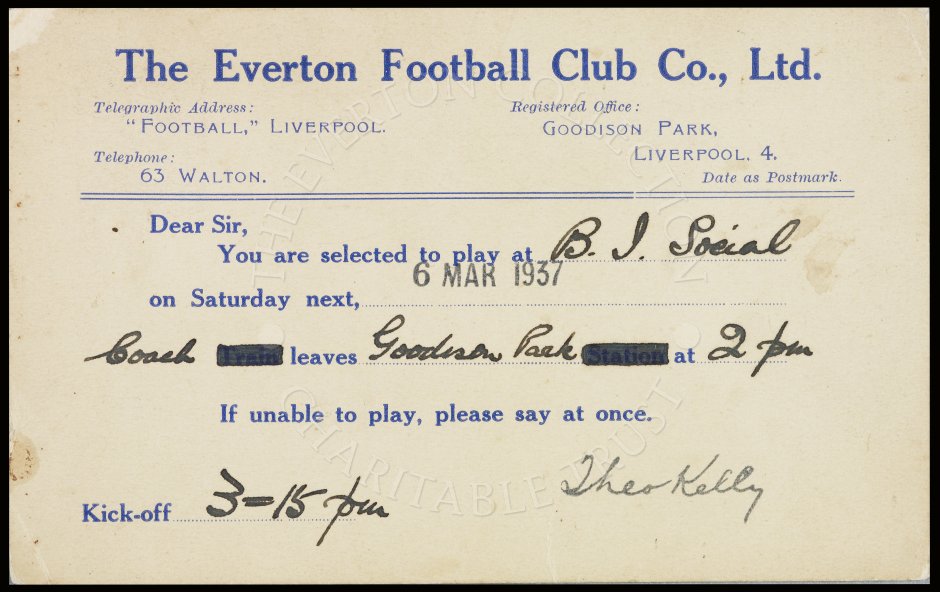 The Everton Football Club Co., Ltd.
Telegraphic Address:
"FOOTBALL," LIVERPOOL.
Telephone:
63 WALTON.
Registered Office:
GOODISON PARK,
LIVERPOOL, 4.
Date as Postmark.
Dear Sir,
You are selected to play at B. I. Social
6 MAR 1937
on Saturday next,
Coach Train leaves Goodison Park Station at 2 pm
If unable to play, please say at once.
Theo Kelly
Kick-off 3=15 pm
THE EVERTON COLLECTION
CHARITABLE TRUST